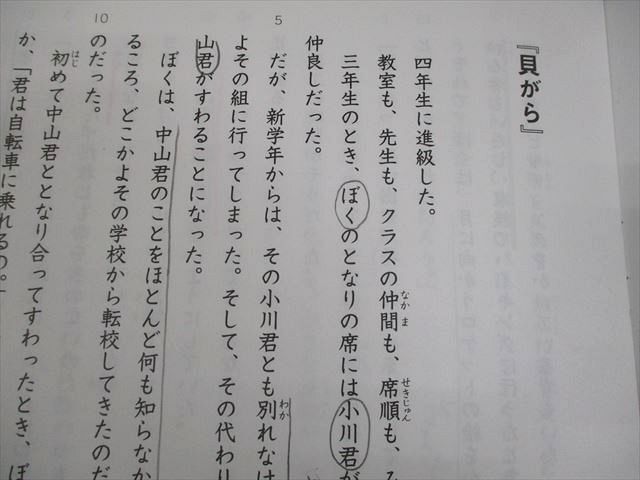 『貝がら』
四年生に進級した。
教室も、先生も、クラスの仲間も、席順も、
なかま
せきじゅん
三年生のとき、ぼくのとなりの席には小川君が
仲良しだった。
5
だが、新学年からは、その小川君とも別れなけ
わか
よその組に行ってしまった。そして、その代わり
山君がすわることになった。
ぼくは、中山君のことをほとんど何も知らなか
るころ、どこかよその学校から転校してきたのだ
のだった。
10
初めて中山君ととなり合ってすわったとき、ぼ
はじ
か、「君は自転車に乗れるの。」